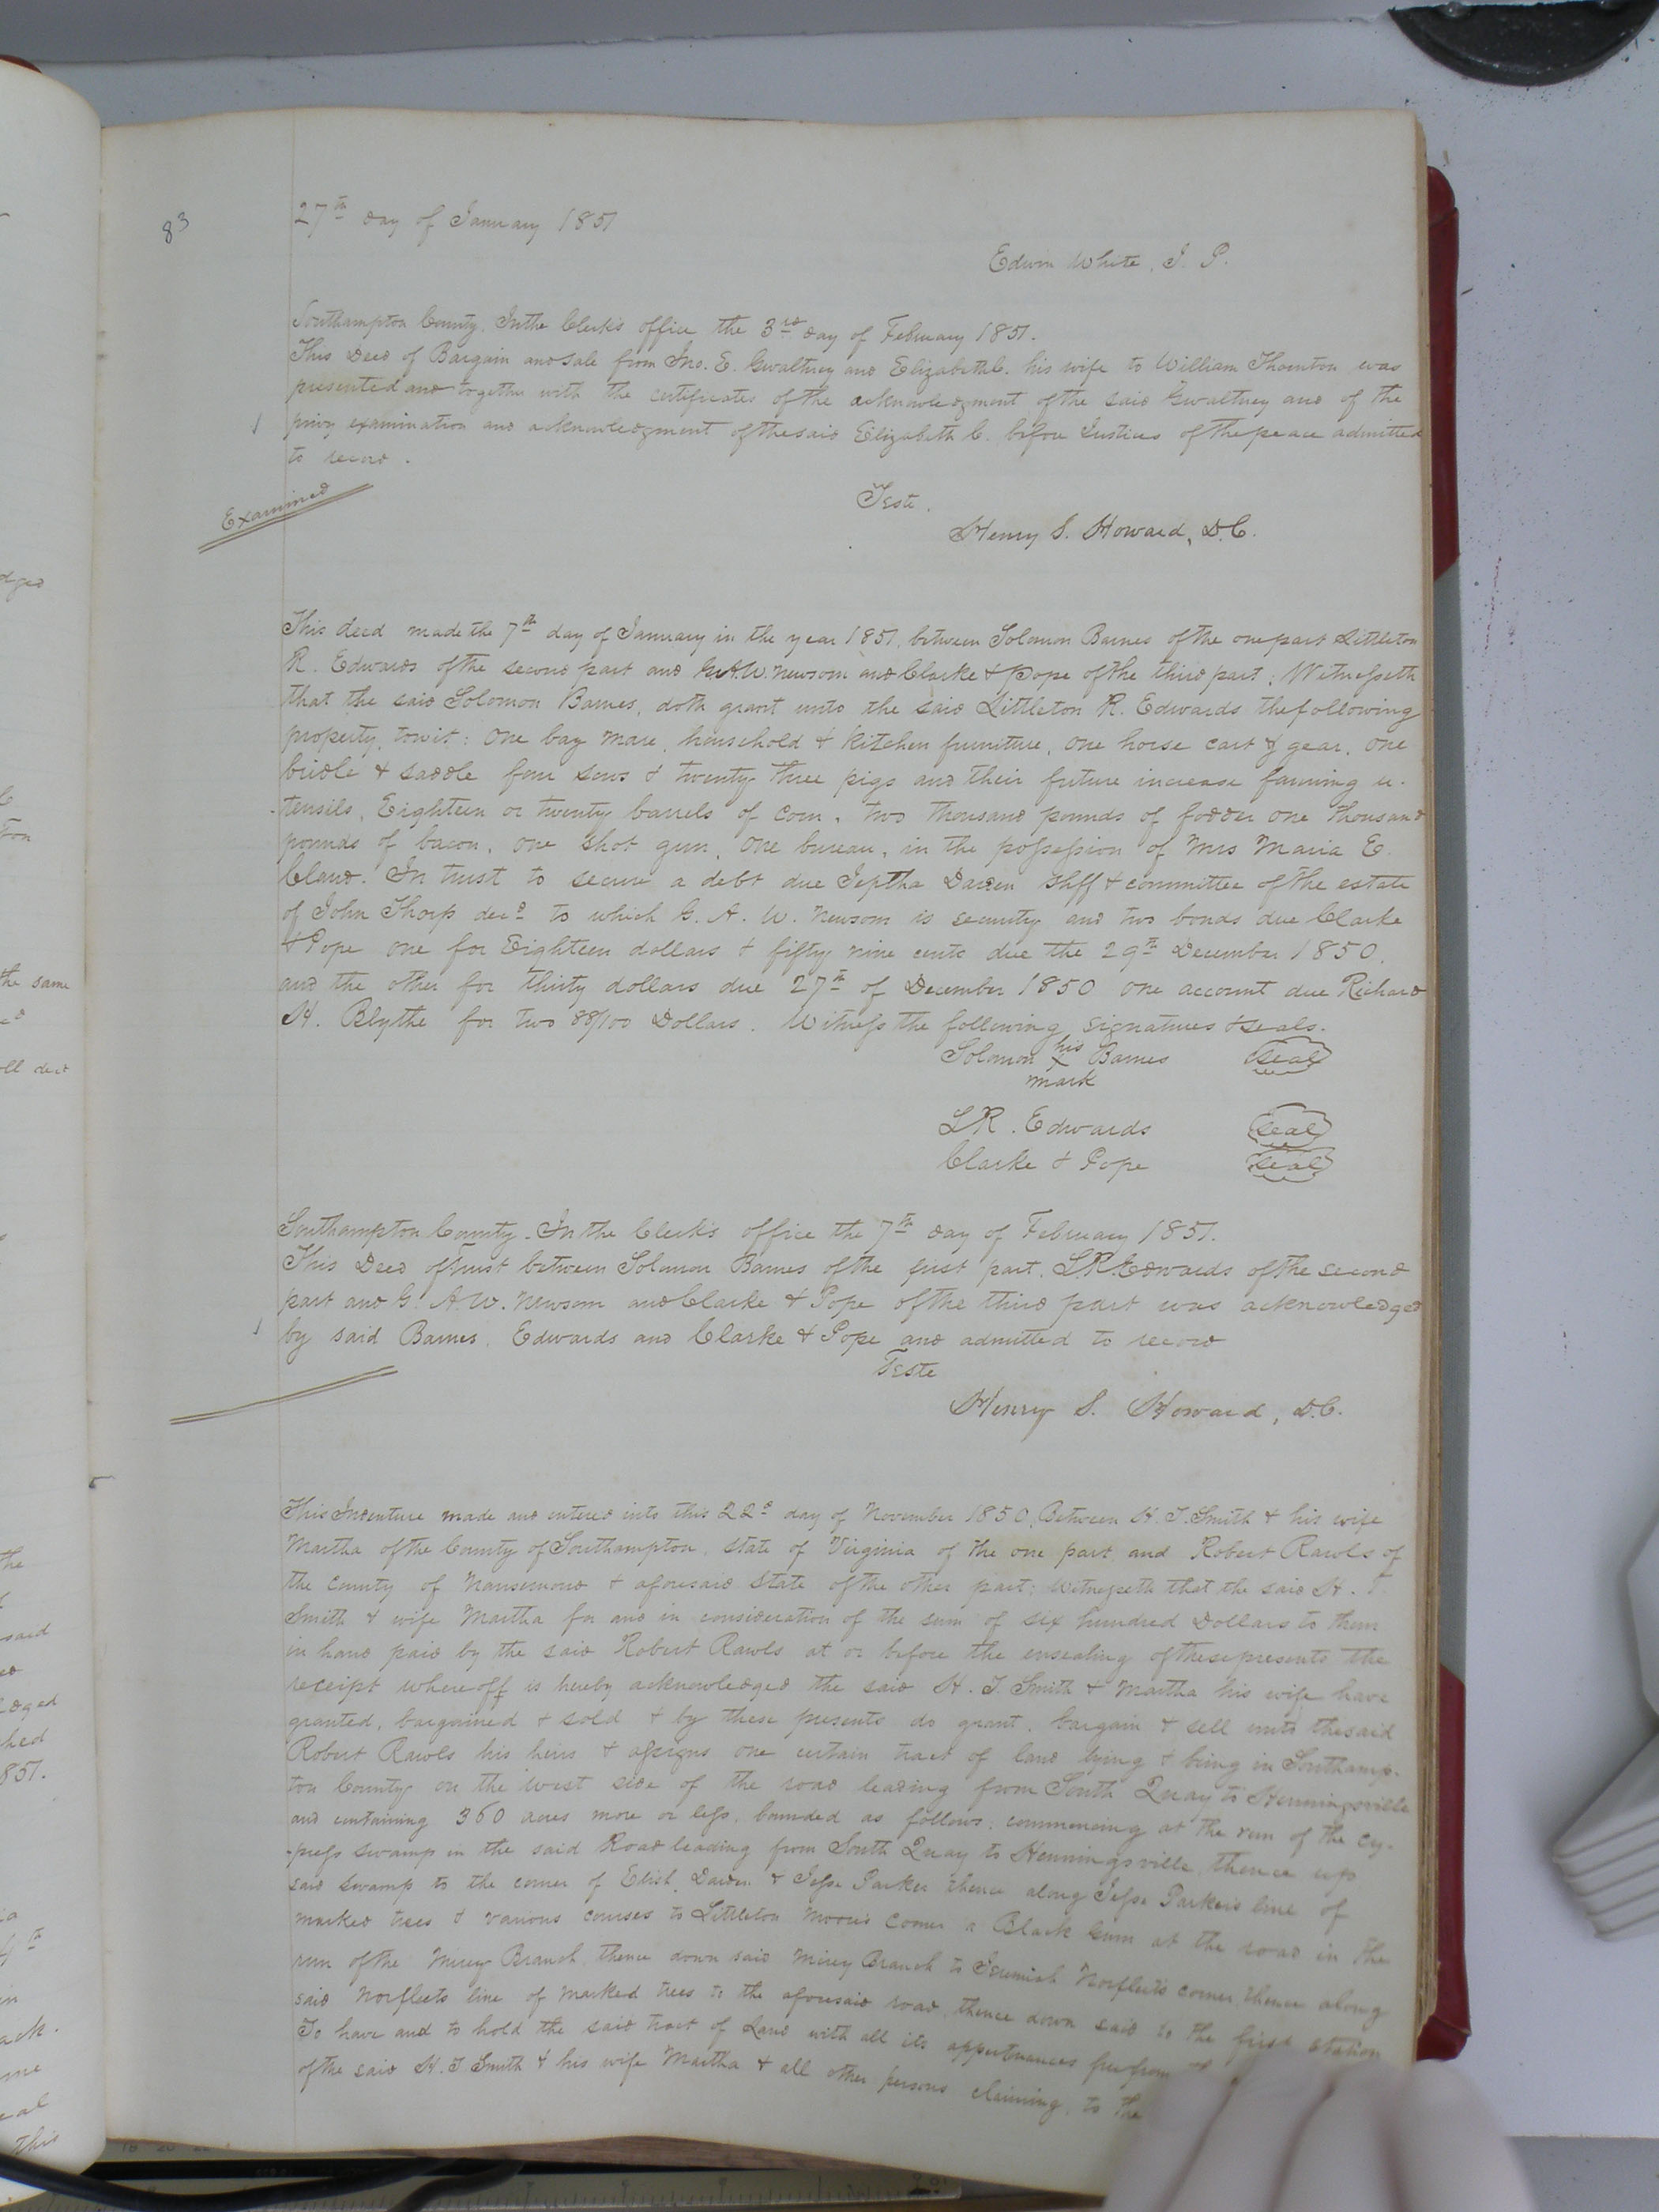 83
27th day of January 1851
Edwin White, J. P.
Southampton County. In the Clerk's office the 3rd day of February 1851.
This Deed of Bargain and sale from Jno. E. Gwaltney and Elizabeth C. his wife to William Thornton was
presented and together with the certificates of the acknowledgment of the said Gwaltney and of the
privy examination and acknowledgment of the said Elizabeth C. before Justices of the peace admitted
to record.
Examined
Teste.
Henry S. Howard, D.C.
This deed made the 7th day of January in the year 1851, between Solomon Barnes of the one part Littleton
R. Edwards of the second part and G. A. W. Newsom and Clarke & Pope of the third part; Witnesseth
that the said Solomon Barnes, doth grant unto the said Littleton R. Edwards the following
property, towit: One bay mare, household & kitchen furniture, one horse cart & gear, one
bridle & saddle four sows & twenty three pigs and their future increase farming u-
-tensils, Eighteen or twenty barrels of corn, two thousand pounds of fodder one thousand
pounds of bacon, one shot gun, one bureau, in the possession of Mrs Maria E.
Claud. In trust to secure a debt due Jeptha Darden Shff & committee of the estate
of John Thorp decd to which G. A. W. Newsom is security and two bonds due Clarke
& Pope one for Eighteen dollars & fifty nine cents due the 29th December 1850,
and the other for thirty dollars due 27th of December 1850 one account due Richard
H. Blythe for two 88/100 Dollars. Witness the following signatures & seals.
Solomon his X mark Barnes seal
L R. Edwards seal
Clarke & Pope seal
Southampton County. In the Clerk's office the 7th day of February 1851.
This Deed of Trust between Solomon Barnes of the first part, L.R. Edwards of the second
part and G. A. W. Newsom and Clarke & Pope of the third part was acknowledged
by said Barnes, Edwards and Clarke & Pope and admitted to record
Teste
Henry S. Howard, D.C.
This Indenture made and entered into this 22d day of November 1850, Between H. T. Smith & his wife
Martha of the County of Southampton, state of Virginia of the one part, and Robert Rawls of
the county of Nansemond & aforesaid State of the other part; Witnesseth that the said H. T.
Smith & wife Martha for and in consideration of the sum of six hundred Dollars to them
in hand paid by the said Robert Rawls at or before the ensealing of these presents the
receipt whereoff is hereby acknowledged the said H. T. Smith & Martha his wife have
granted, bargained & sold & by these presents do grant, bargain & sell unto the said
Robert Rawls his heirs & assigns one certain tract of land lying & being in Southamp-
ton County on the west side of the road leading from South Quay to Henningsville
and containing 360 acres more or less, bounded as follows, commencing at the run of the cy-
-press swamp in the said Road leading from South Quay to Henningsville, thence up
said swamp to the corner of Elish. Darden & Jesse Parker thence along Jesse Parker's line of
marked trees & various courses to Littleton Morris corner a Black Gum at the road in the
run of the Mirey Branch, thence down said Mirey Branch to Jeremiah Norfleet's corner, thence along
said Norfleets line of marked trees to the aforesaid road, thence down said to the first station
To have and to hold the said tract of Land with all its appertunances free from
of the said H. T Smith & his wife Martha & all other persons claiming, to the